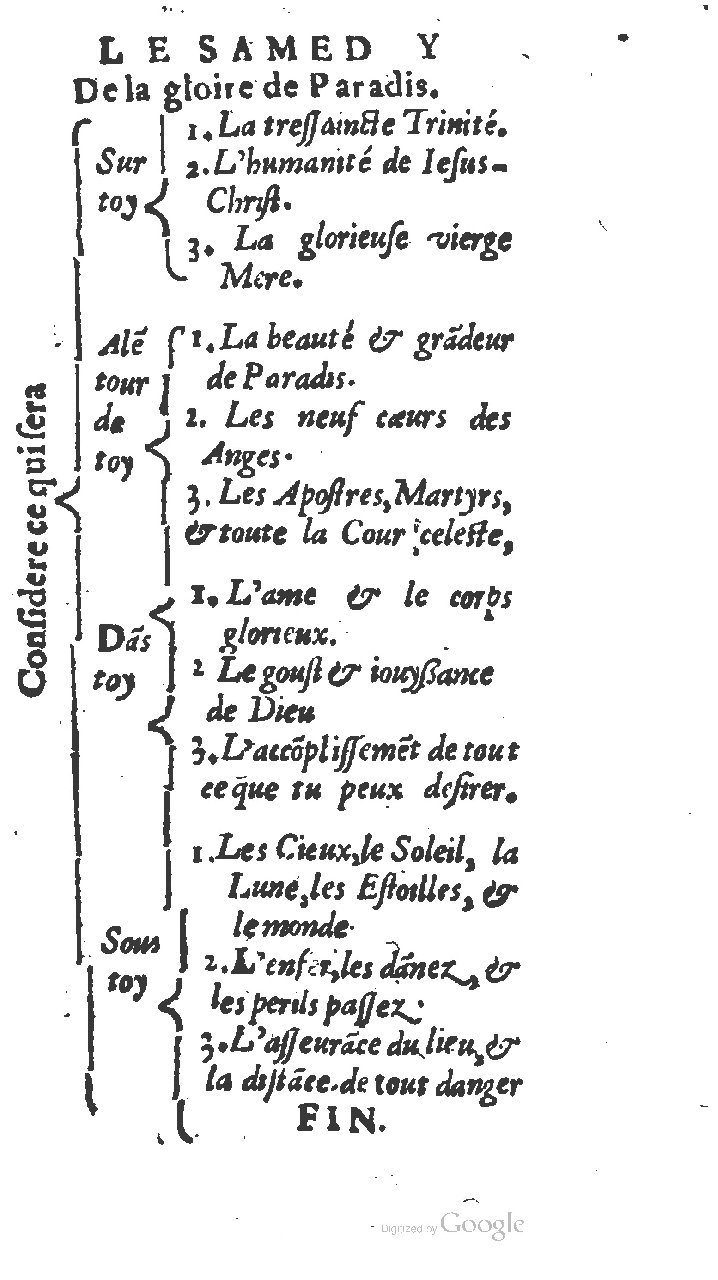 LE SAMEDY
De la gloire de Paradis.
Considere ce qui sera
Sur
toy
1. La tressaincte Trinité.
2. L'humanité de Iesus-
Christ.
3. La glorieuse vierge
Mere.
Alẽ
tour
de
toy
1. La beauté & grãdeur
de Paradis.
2. Les neuf cœurs des
Anges.
3. Les Apostres, Martyrs,
& toute la Cour celeste,
Dãs
toy
1. L'ame & le corps
glorieux.
2 Le goust & iouyssance
de Dieu
3. L'accõplissemẽt de tout
ce q̃ue tu peux desirer.
Sous
toy
1. Les Cieux, le Soleil, la
Lune, les Estoilles, &
le monde.
2. L'enfer, les dãnez, &
les perils passez.
3. L'asseurãce du lieu, &
la distãce de tout danger
FIN.
Digitized by Google